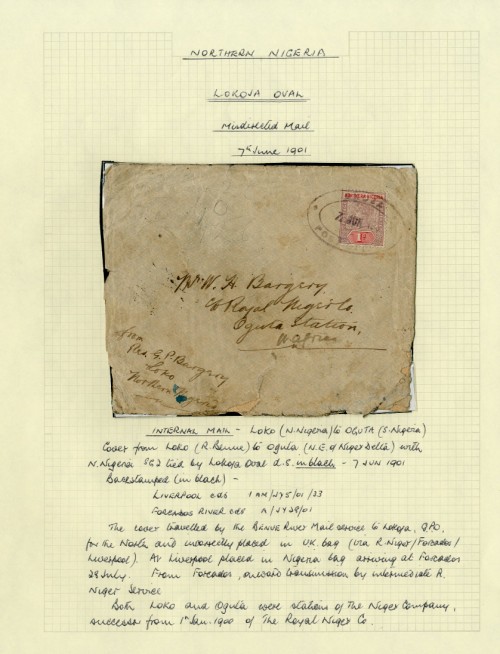 NORTHERN NIGERIA
LOKOJA OVAL
Misdirected Mail
7th June 1901
Mr W. H. Bargery
c/o Royal Niger Co.
Oguta Station,
W. Africa
From
Rev. G. P. Bargery
Loko
Northern Nigeria
INTERNAL MAIL - LOKO (N. Nigeria) to OGUTA (S. Nigeria)
Cover from Loko (R. Benue) to Oguta (N.E. of Niger Delta) with
N. Nigeria SG2 tied by Lokoja Oval d.s. in black - 7 JUN 1901
Backstamped (in black) -
LIVERPOOL cds 1 AM/JY5/01/23
FORCADOS RIVER cds A/JY28/01
The cover travelled by the BENUE River Mail service to Lokoja, GPO,
for the North and incorrectly placed in UK. bag (via R. Niger/Forcados/
Liverpool). At Liverpool placed in Nigeria bag arriving at Forcados
28 July. From Forcados, onward transmission by intermediate R.
Niger Service
Both Loko and Oguta were stations of The Niger Company,
successor from 1st Jan. 1900 of The Royal Niger Co.